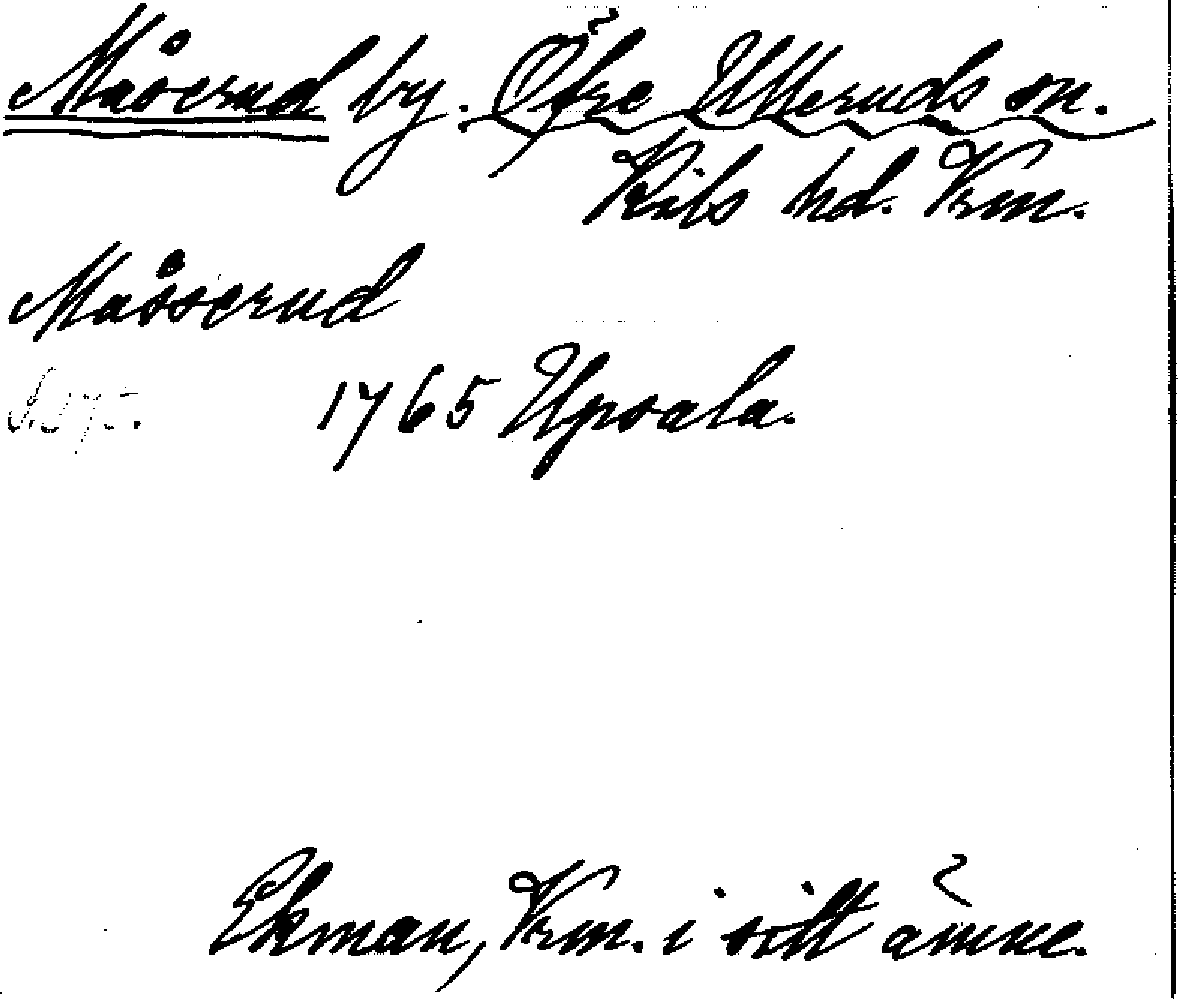 Måserud by. Öfre Ulleruds sn.
Kils hd. Vrm.
Måsserud
1765 Upsala.
Ekman, Vrm. i sitt ämne.